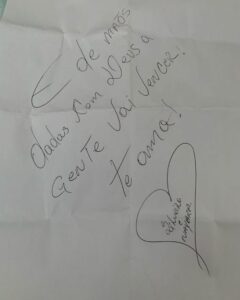 E de mãos
Dadas com Deus a
GENTE Vai VENCER!
te ama!